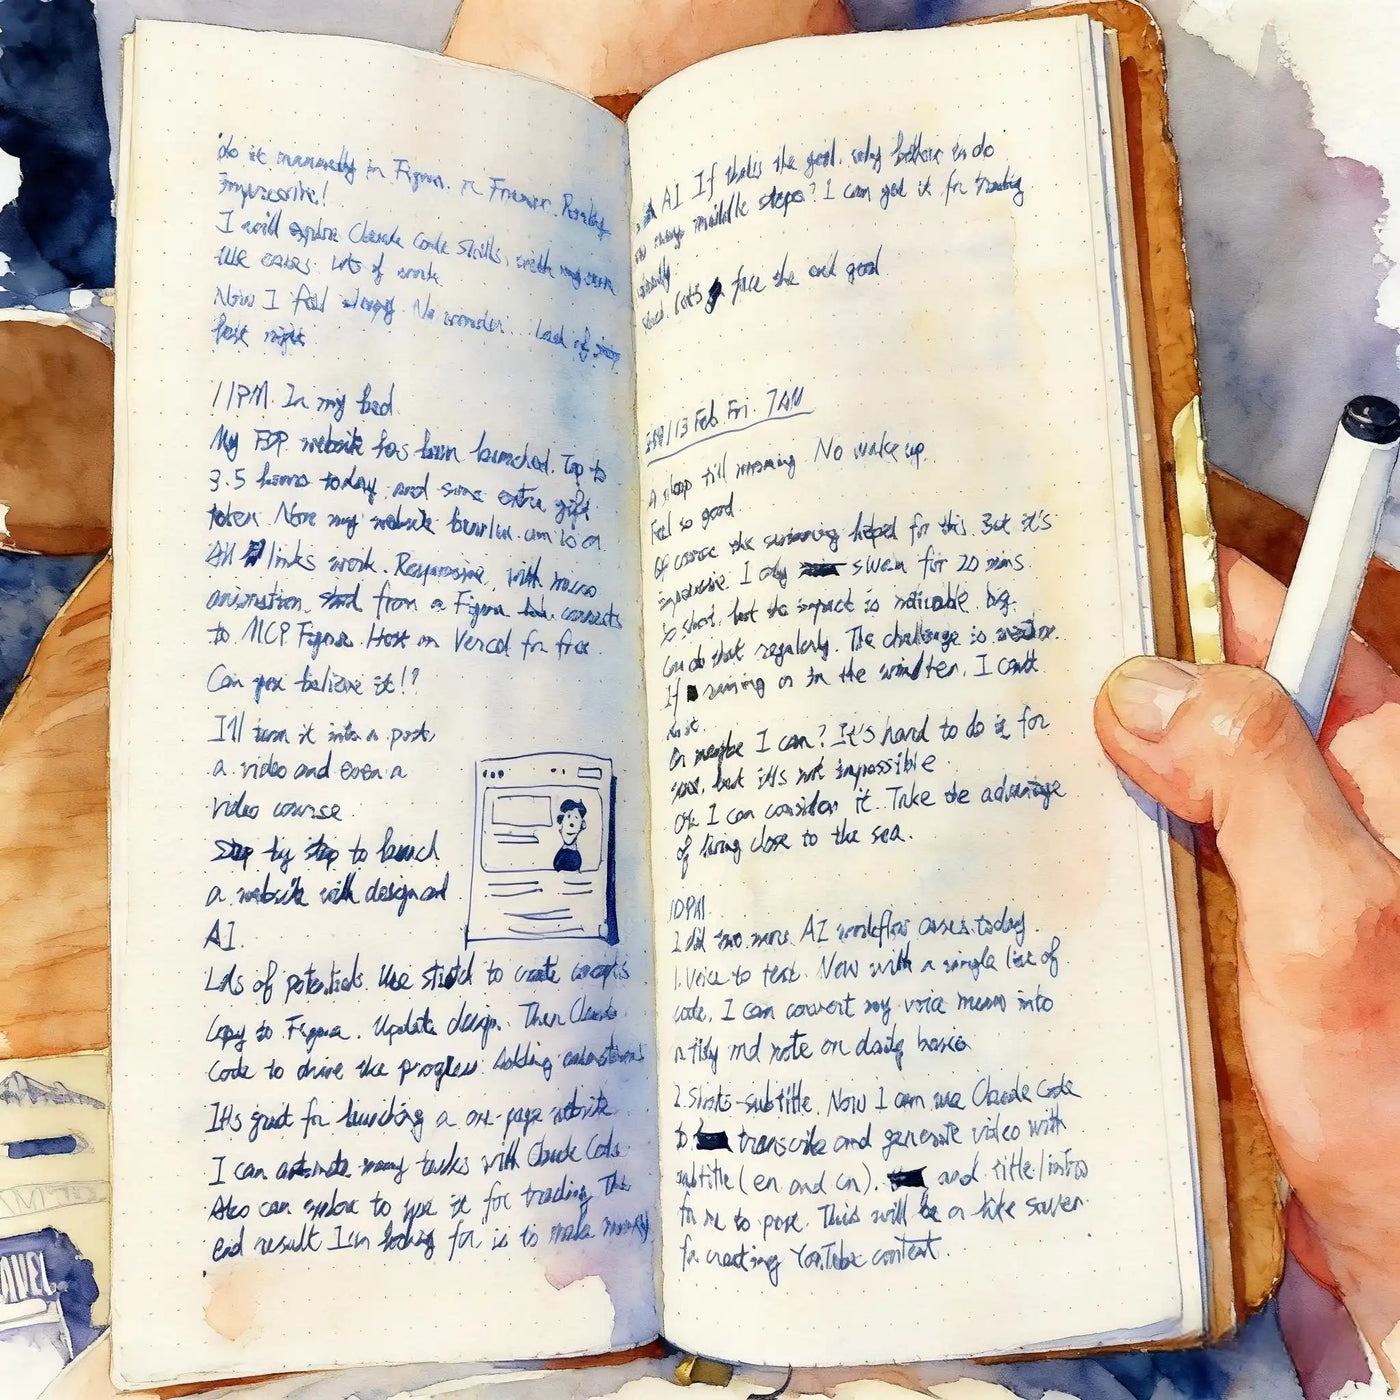 do it manually in Figma. or Framer. Really
impressive!
I will explore Claude Code skills, with my own
use cases. Lots of work.
Now I feel sleepy. No wonder... Lack of sleep
last night.
11PM. In my bed.
My website has been launched. Top to
3.5 hours today, and some extra gift
token. Now my website is on.
All links work. Responsive, with micro
animation, from a Figma connects
to MCP Figma. Host on Vercel for free.
Can you believe it!?
I'll turn it into a post,
a video and even a
video course.
Step by step to launch
a website with design and
AI.
Lots of potentials. Use stitch to create concepts
Copy to Figma. Update design. Then Claude
Code to drive the progress. Adding animations
It's great for launching a one-page website
I can automate many tasks with Claude Code.
Also can explore to use it for trading. The
end result I'm looking for is to make money
AI If that's the goal, why bother to do
so many middle steps? I can use it for trading
directly.
Let's face the end goal
13 Feb Fri. 7AM
A sleep till morning No wake up.
Feel so good.
Of course the swimming helped for this. But it's
impressive. I only swam for 20 mins.
So short, but the impact is noticeable big.
Can do that regularly. The challenge is
If raining or in the winter, I can't
do it.
Or maybe I can? It's hard to do it for
sure, but it's not impossible
OK I can consider it. Take the advantage
of living close to the sea.
10PM
I did two more AI workflow cases today.
1. Voice to text. Now with a single line of
code, I can convert my voice memo into
a tidy md note on daily basis
2. Shorts-subtitle. Now I can use Claude Code
to transcribe and generate video with
subtitle (en and cn). and title/intro
for me to post. This will be a life saver
for creating YouTube content.